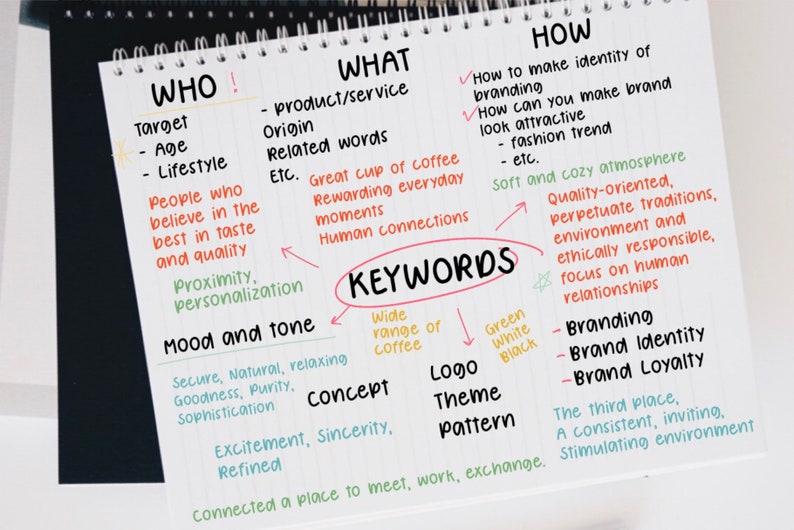 WHO !
Target
- Age
- Lifestyle
People who
believe in the
best in taste
and quality
Proximity,
personalization
WHAT
- product/service
Origin
Related words
Etc.
Great cup of coffee
Rewarding everyday
moments
Human connections
HOW
How to make identity of
branding
How can you make brand
look attractive
- fashion trend
- etc.
Soft and cozy atmosphere
Quality-oriented,
perpetuate traditions,
environment and
ethically responsible,
focus on human
relationships
KEYWORDS
Mood and tone
Secure, Natural, relaxing
Goodness, Purity,
Sophistication
Wide
range of
coffee
Green
White
Black
Concept
Logo
Theme
Pattern
- Branding
- Brand Identity
- Brand Loyalty
Excitement, Sincerity,
Refined
The third place,
A consistent, inviting,
Stimulating environment
Connected a place to meet, work, exchange.